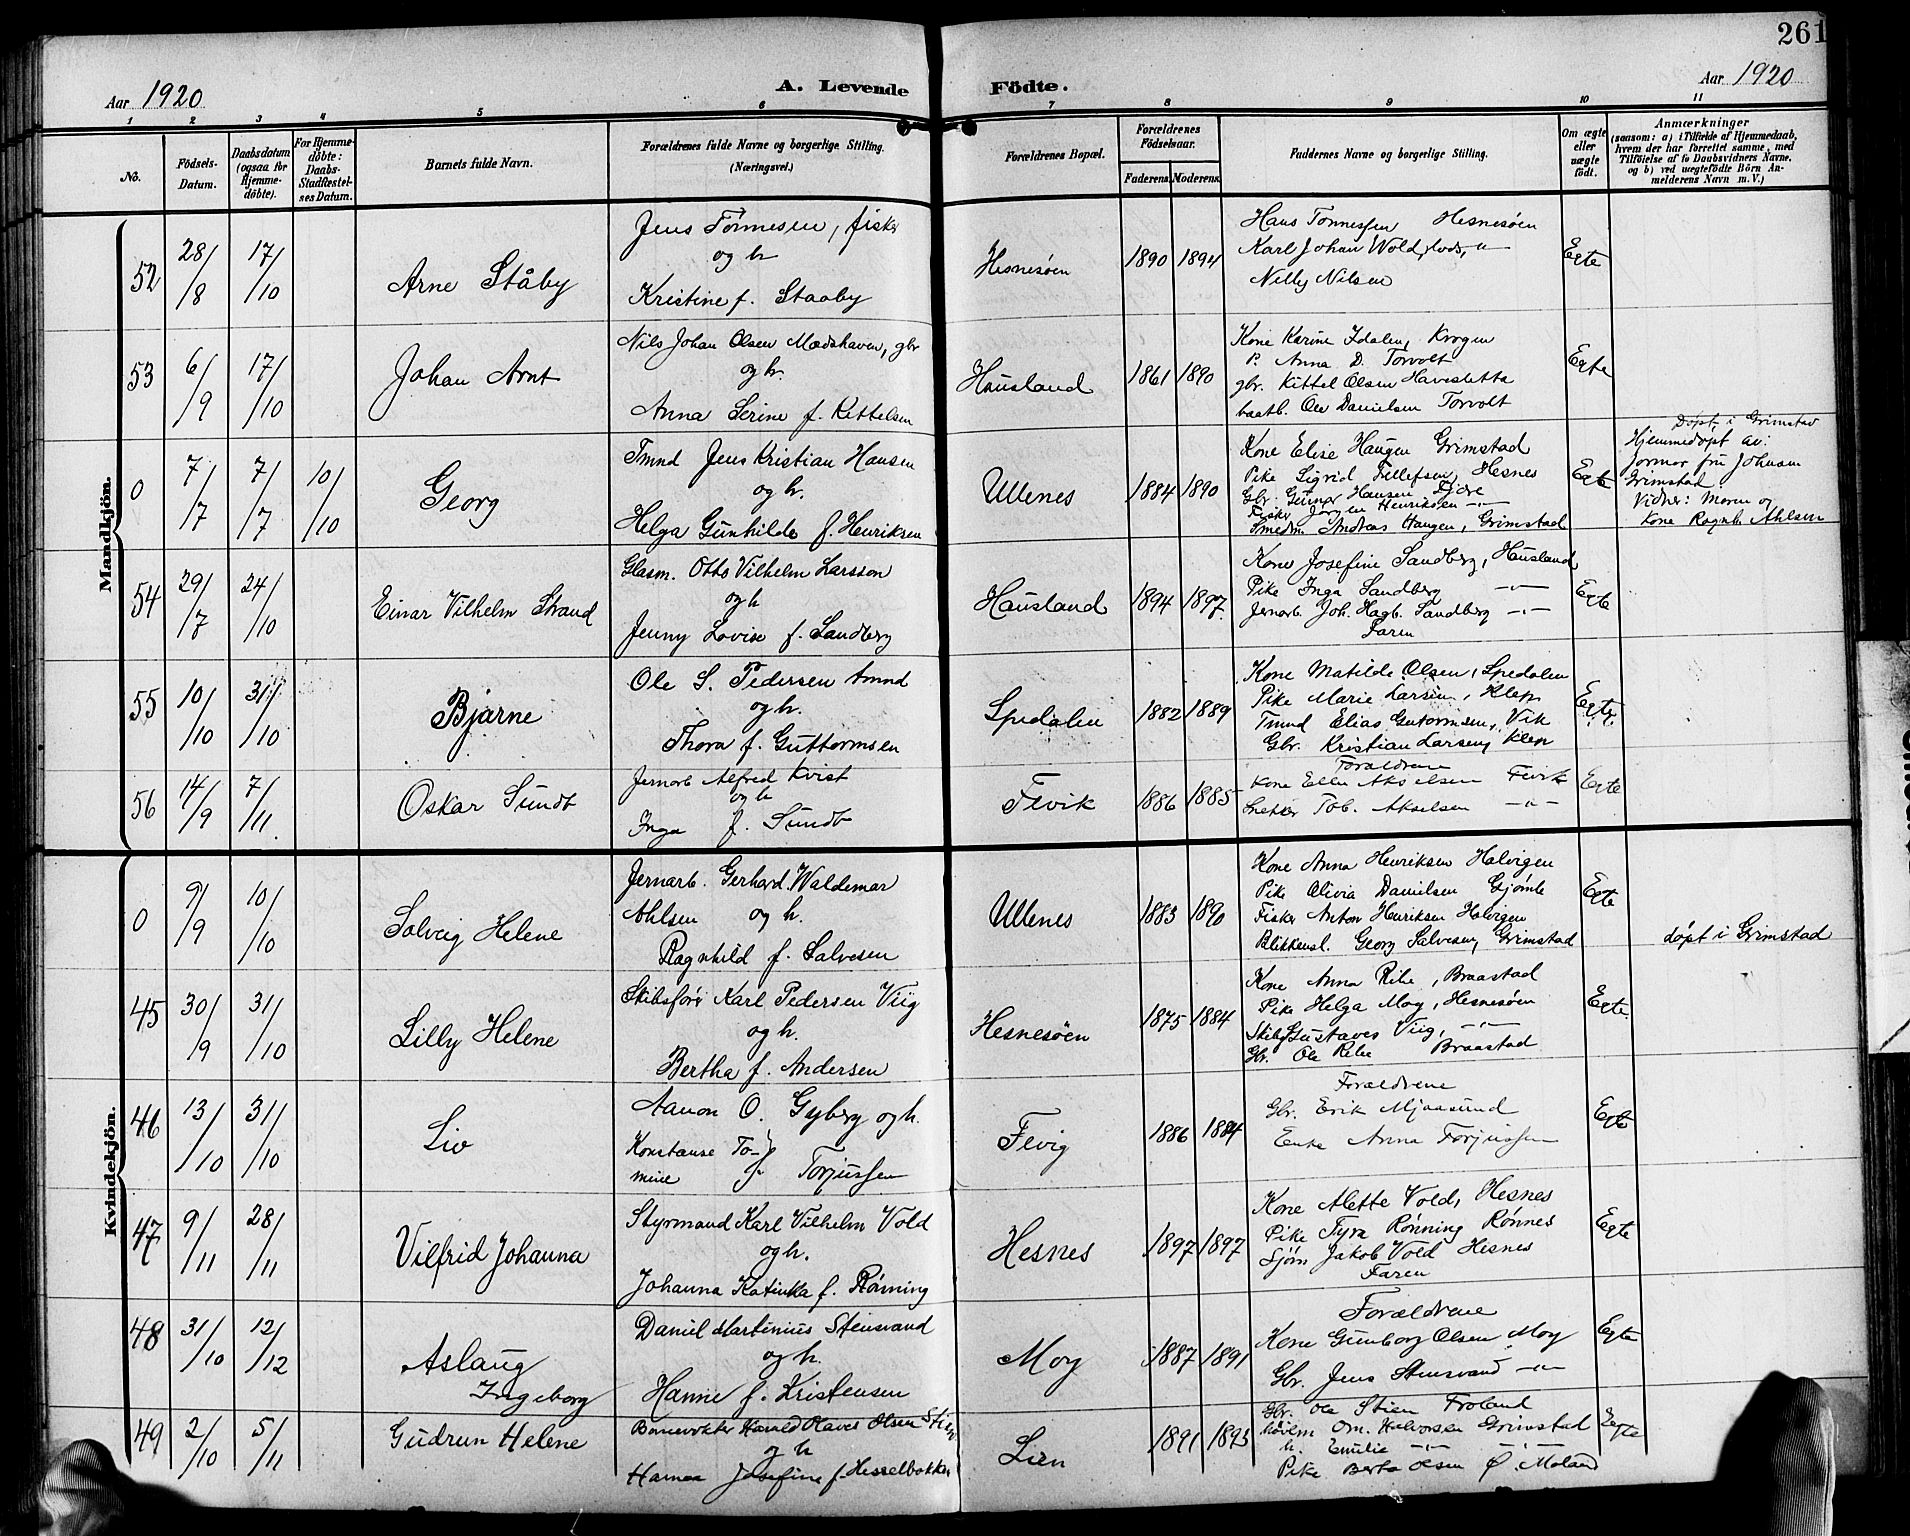 261
Aar 1920
A. Levende
Födte.
Aar 1920
1 2 3 4 5 6 7 8 9 10 11
No.
Födsels-Datum.
Daabsdatum (ogsaa for Hjemme-döbte).
For Hjemme-döbte: Daabs-Stadfæstel-ses Datum.
Barnets fulde Navn.
Forældrenes fulde Navne og borgerlige Stilling. (Næringsvei.)
Forældrenes Bopæl.
Forældrenes Födselsaar.
Faderens. Moderens.
Faddernes Navne og borgerlige Stilling.
Om ægte eller uægte födt.
Anmærkninger
(saasom: a) i Tilfælde af Hjemmedaab, hvem der har forrettet samme, med Tilföielse af to Daabsvidners Navne, og b) ved uægtefödte Börn Anmelderens Navn m. V.)
Mandkjön.
52 28/8 17/10 Arne Ståby
Jens Tønnesen, fisker
og h
Kristine f. Staaby
Hesnesøen 1890 1894
Hans Tønnessen Hesnesøen
Karl Johan Wold, lods, -"-
Nelly Nilsen
Egte
53 6/9 17/10 Johan Arnt
Nils Johan Olsen Mædshaven, gbr
og h.
Anna Serine f. Kittelsen
Hausland 1861 1890
Kone Karine Idalen, Krogen
P. Anna D. Torvolt
gbr. Kittel Olsen Haveslette
baatb. Ole Danielsen Torvolt
Egte
0 7/7 7/7 10/10 Georg
Tmnd Jens Kristian Hansen
og h.
Helga Gunhilde f. Henriksen
Ullenes 1884 1890
Kone Elise Haugen Grimstad
Pike Sigrid Tellefsen, Hesnes
Gbr. Gunnar Hansen
Fisker Jørgen Henriksen -"-
Smedm Andreas Haugen, Grimstad
Egte
Døpt i Grimstad
Hjemmedøpt av:
Jormor fru Johnsen
Grimstad
Vidner: Moren og
Kone Ragnh. Ahlsen
54 29/7 24/10 Einar Vilhelm Strand
Glasm. Otto Vilhelm Larsson
og h
Jenny Lovise f. Sandberg
Hausland 1894 1897.
Kone Josefine Sandberg, Hausland
Pike Inga Sandberg -"-
Jernarb. Joh. Hagb. Sandberg -"-
Faren
Egte
55 10/10 31/10 Bjarne
Ole S. Pedersen tmnd
og h.
Thora f. Guttormsen
Spedalen 1882 1889
Kone Matilde Olsen, Spedalen
Pike Marie Larsen, Klep
Tmnd Elias Gutormsen, Vik
Gbr. Kristian Larsen, Klep
Egte.
56 14/9 7/11 Oskar Sundt
Jernarb Alfred Kvist
og h
Inga f. Sundt
Fevik 1886 1885
Forældrene
Kone Ellen Akselsen Fevik
Snekker Tob. Akselsen -"-
Egte
Kvindekjön.
0 9/9 10/10 Solveig Helene
Jernarb. Gerhard Waldemar
Ahlsen og h.
Ragnhild f. Salvesen
Ullenes 1883 1890
Kone Anna Henriksen Halvigen
Pike Olivia Danielsen Gjømle
Fisker Anton Henriksen Halvigen
Blikkensl. Georg Salvesen, Grimstad
Egte
døpt i Grimstad
45 30/9 31/10 Lilly Helene
Skibsfører Karl Pedersen Viig
og h.
Bertha f. Andersen
Hesnesøen 1875 1884
Kone Anna Ribe, Braastad
Pike Helga Moy, Hesnesøen
Skibsf Gustaves Viig, -"-
Gbr. Ole Ribe Braastad
Egte.
46 13/10 31/10 Liv
Aanon O. Gyberg og h.
Konstanse To-
mine f. Torjussen
Fevig 1886 1884
Forældrene
Gbr. Erik Mjaasund
Enke Anna Torjussen
Egte
47 9/11 28/11 Vilfrid Johanna
Styrmand Karl Vilhelm Vold
og h.
Johanna Katinka f. Rønning
Hesnes 1897 1897
Kone Alette Vold, Hesnes
Pike Tyra Rønning Rønnes
Sjøm Jakob Vold Hesnes
Faren
Egte
48 31/10 12/12 Aslaug
Ingeborg
Daniel Martinius Stensvand
og h.
Hanne f. Kristensen
Moy 1887 1891
Forældrene
Kone Gunborg Olsen Moy
Gbr. Jens Stensvand -"-
Egte
49 2/10 5/11 Gudrun Helene
Banevokter Harald Olaves Olsen Stien
og h
Hanna Josefine f. Hesselbakken
Lien 1891 1895
Gbr. Ole Stien Froland
Om. Halvorsen Grimstad
h. Emilie -"- -"-
Pike Berta Olsen Ø. Moland
Egte